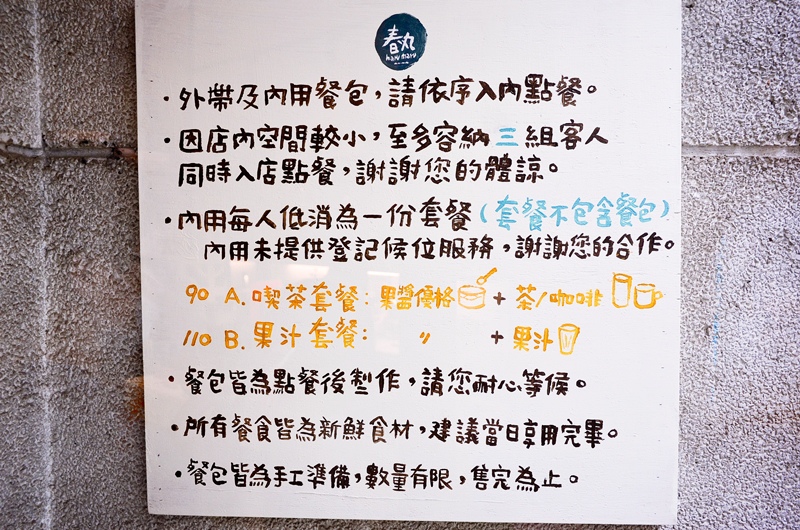 春丸
haru maru
·外帶及內用餐包，請依序入內點餐。
·因店內空間較小，至多容納三組客人
同時入店點餐，謝謝您的體諒。
·內用每人低消為一份套餐（套餐不包含餐包）
內用未提供登記候位服務，謝謝您的合作。
90 A.喫茶套餐：果醬優格 + 茶/咖啡
110 B.果汁套餐： 〃 + 果汁
·餐包皆為點餐後製作，請您耐心等候。
·所有餐食皆為新鮮食材，建議當日享用完畢。
·餐包皆為手工準備，數量有限，售完為止。